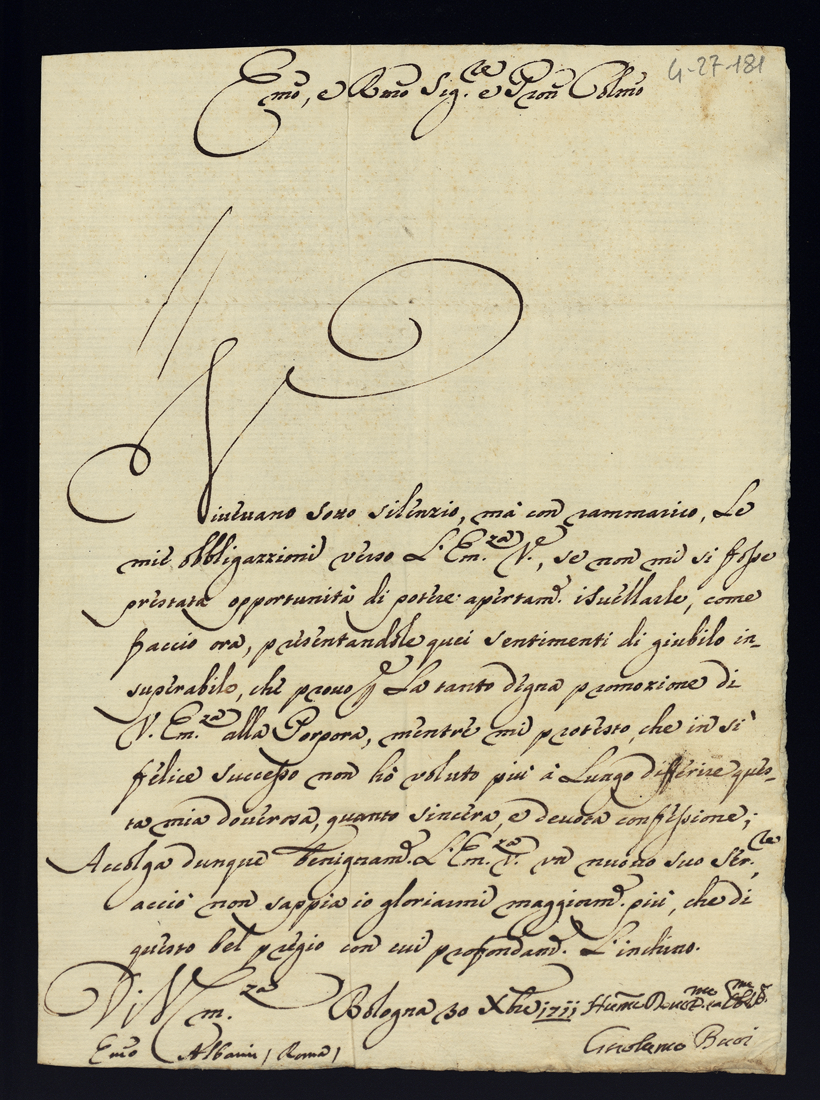 G-27-181
Emo, e Rmo Sig.re e Pron Colmo
Viveuano sotto silenzio, mà con rammarico, Le
mie obbligazzioni verso L'Em.za V.e, se non mi si fosse
prestata opportunità di potere apertam.e isuellarle, come
faccio ora, presentandole quei sentimenti di giubilo in-
superabile, che prouo p La tanto degna promozione di
V. Em.za alla Porpora, mentre mi protesto, che in sì
felice successo non hò voluto più à Lungo differire ques-
ta mia douerosa, quanto sincera, e deuota confessione;
Accolga dunque benignam.e L'Em.za V. un nuouo suo Ser.le
acciò non sappia io gloriarmi maggiorm.e più, che di
questo bel pregio con cui profondam.e L'inchino.
Di V. Em.za
Bologna 30 Xbre 1711
Emo Albani / Roma /
Girolamo Buoi